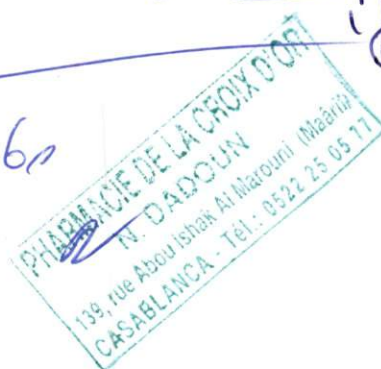 PHARMACIE DE LA CROIX D'OR
N. DADOUN
139, rue Abou Ishak Al Marouni (Maârif)
CASABLANCA - Tél.: 0522 25 05 77